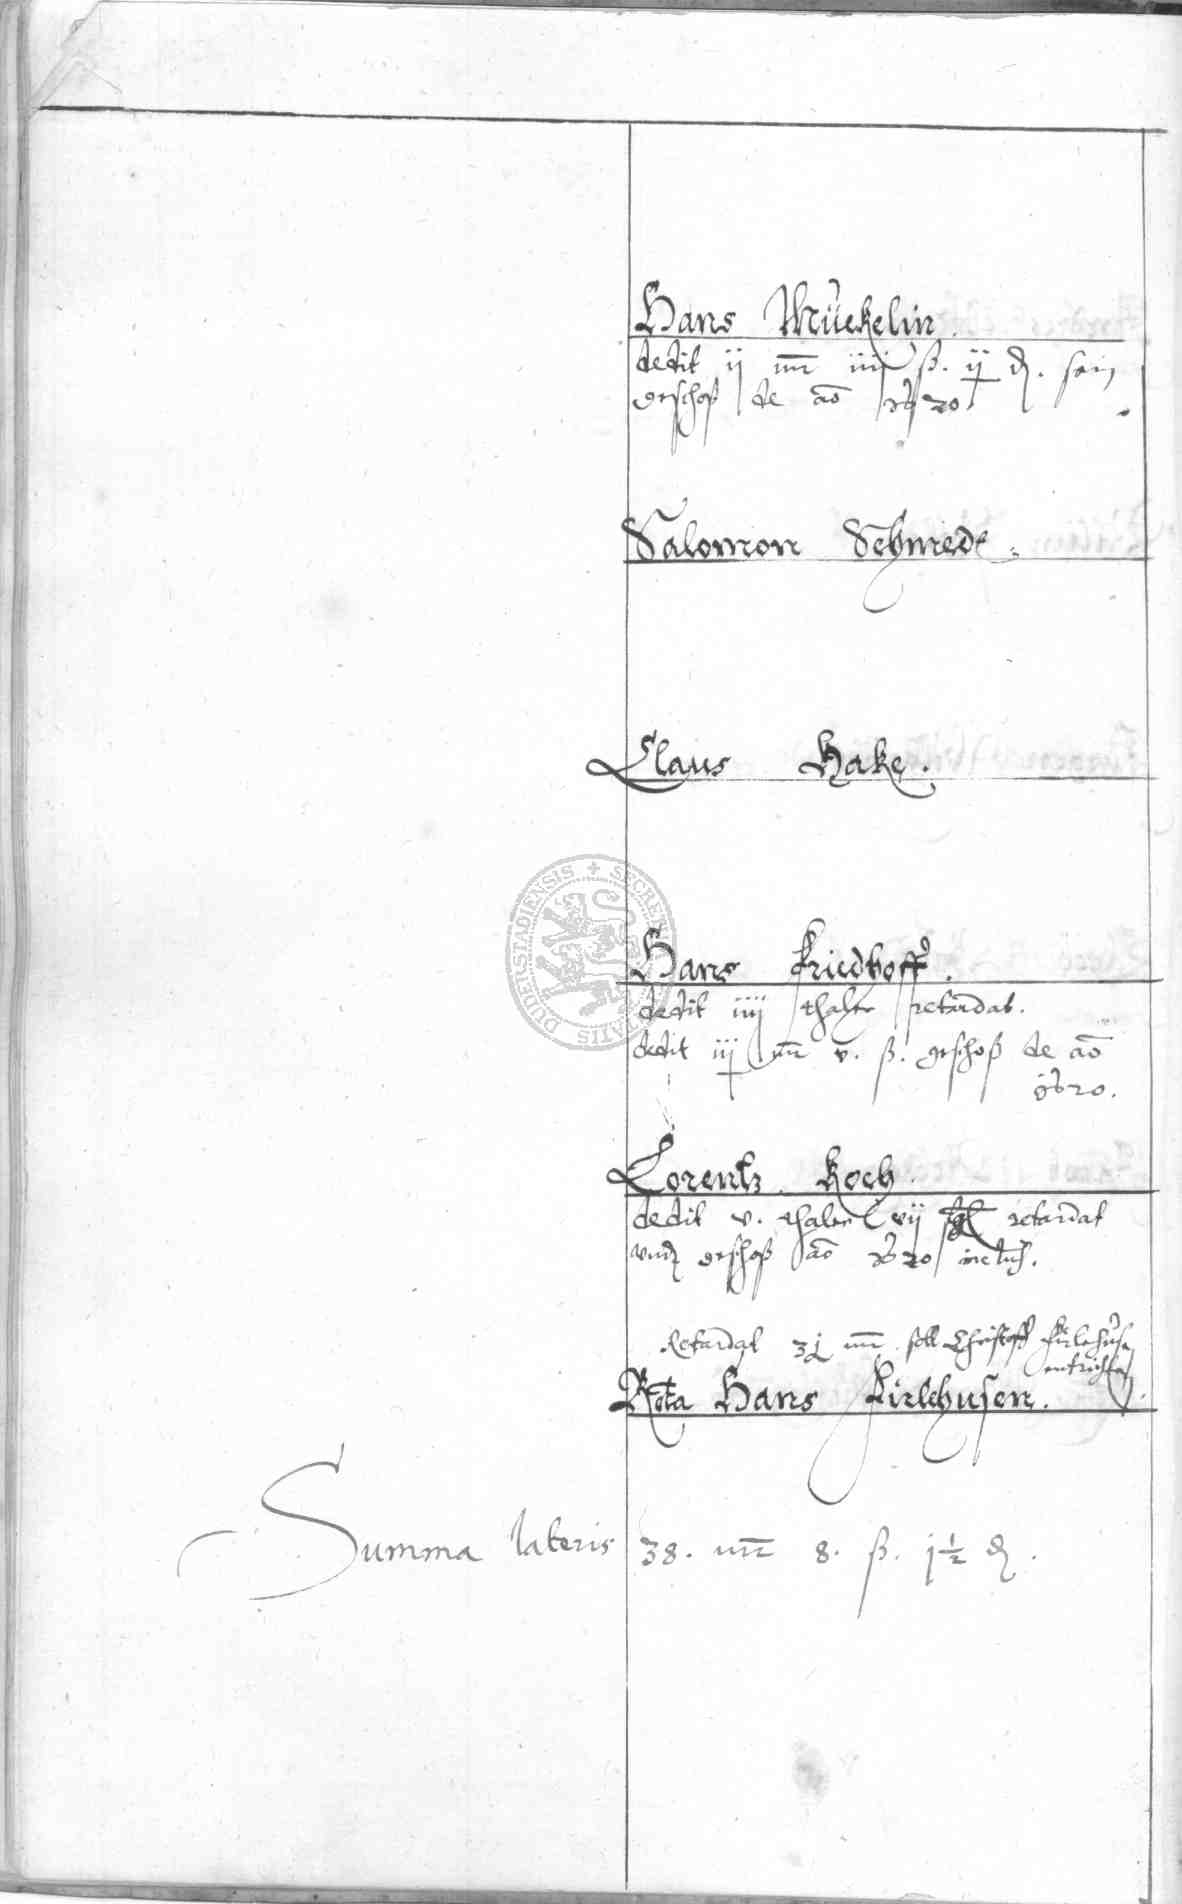 Hans Mückelin.
dedit ij mr iiij ß. ij ₰. sein
geschoß de aō 1620.
Salomon Schmede.
Claus Hake.
Hans Friedhoff.
dedit iiij thaler retardat.
dedit iij mr v. ß. geschoß de aō
1620.
Lorentz Koch.
dedit v. thaler vij retardat
vnd geschoß aō 1620
Retardat mr soll Christoff
entrichten
Rēta Hans Kirlehusen.
Summa lateris 38. mr 8. ß. j 1/2 ₰.
SECRET DUDERSTADIENSIS